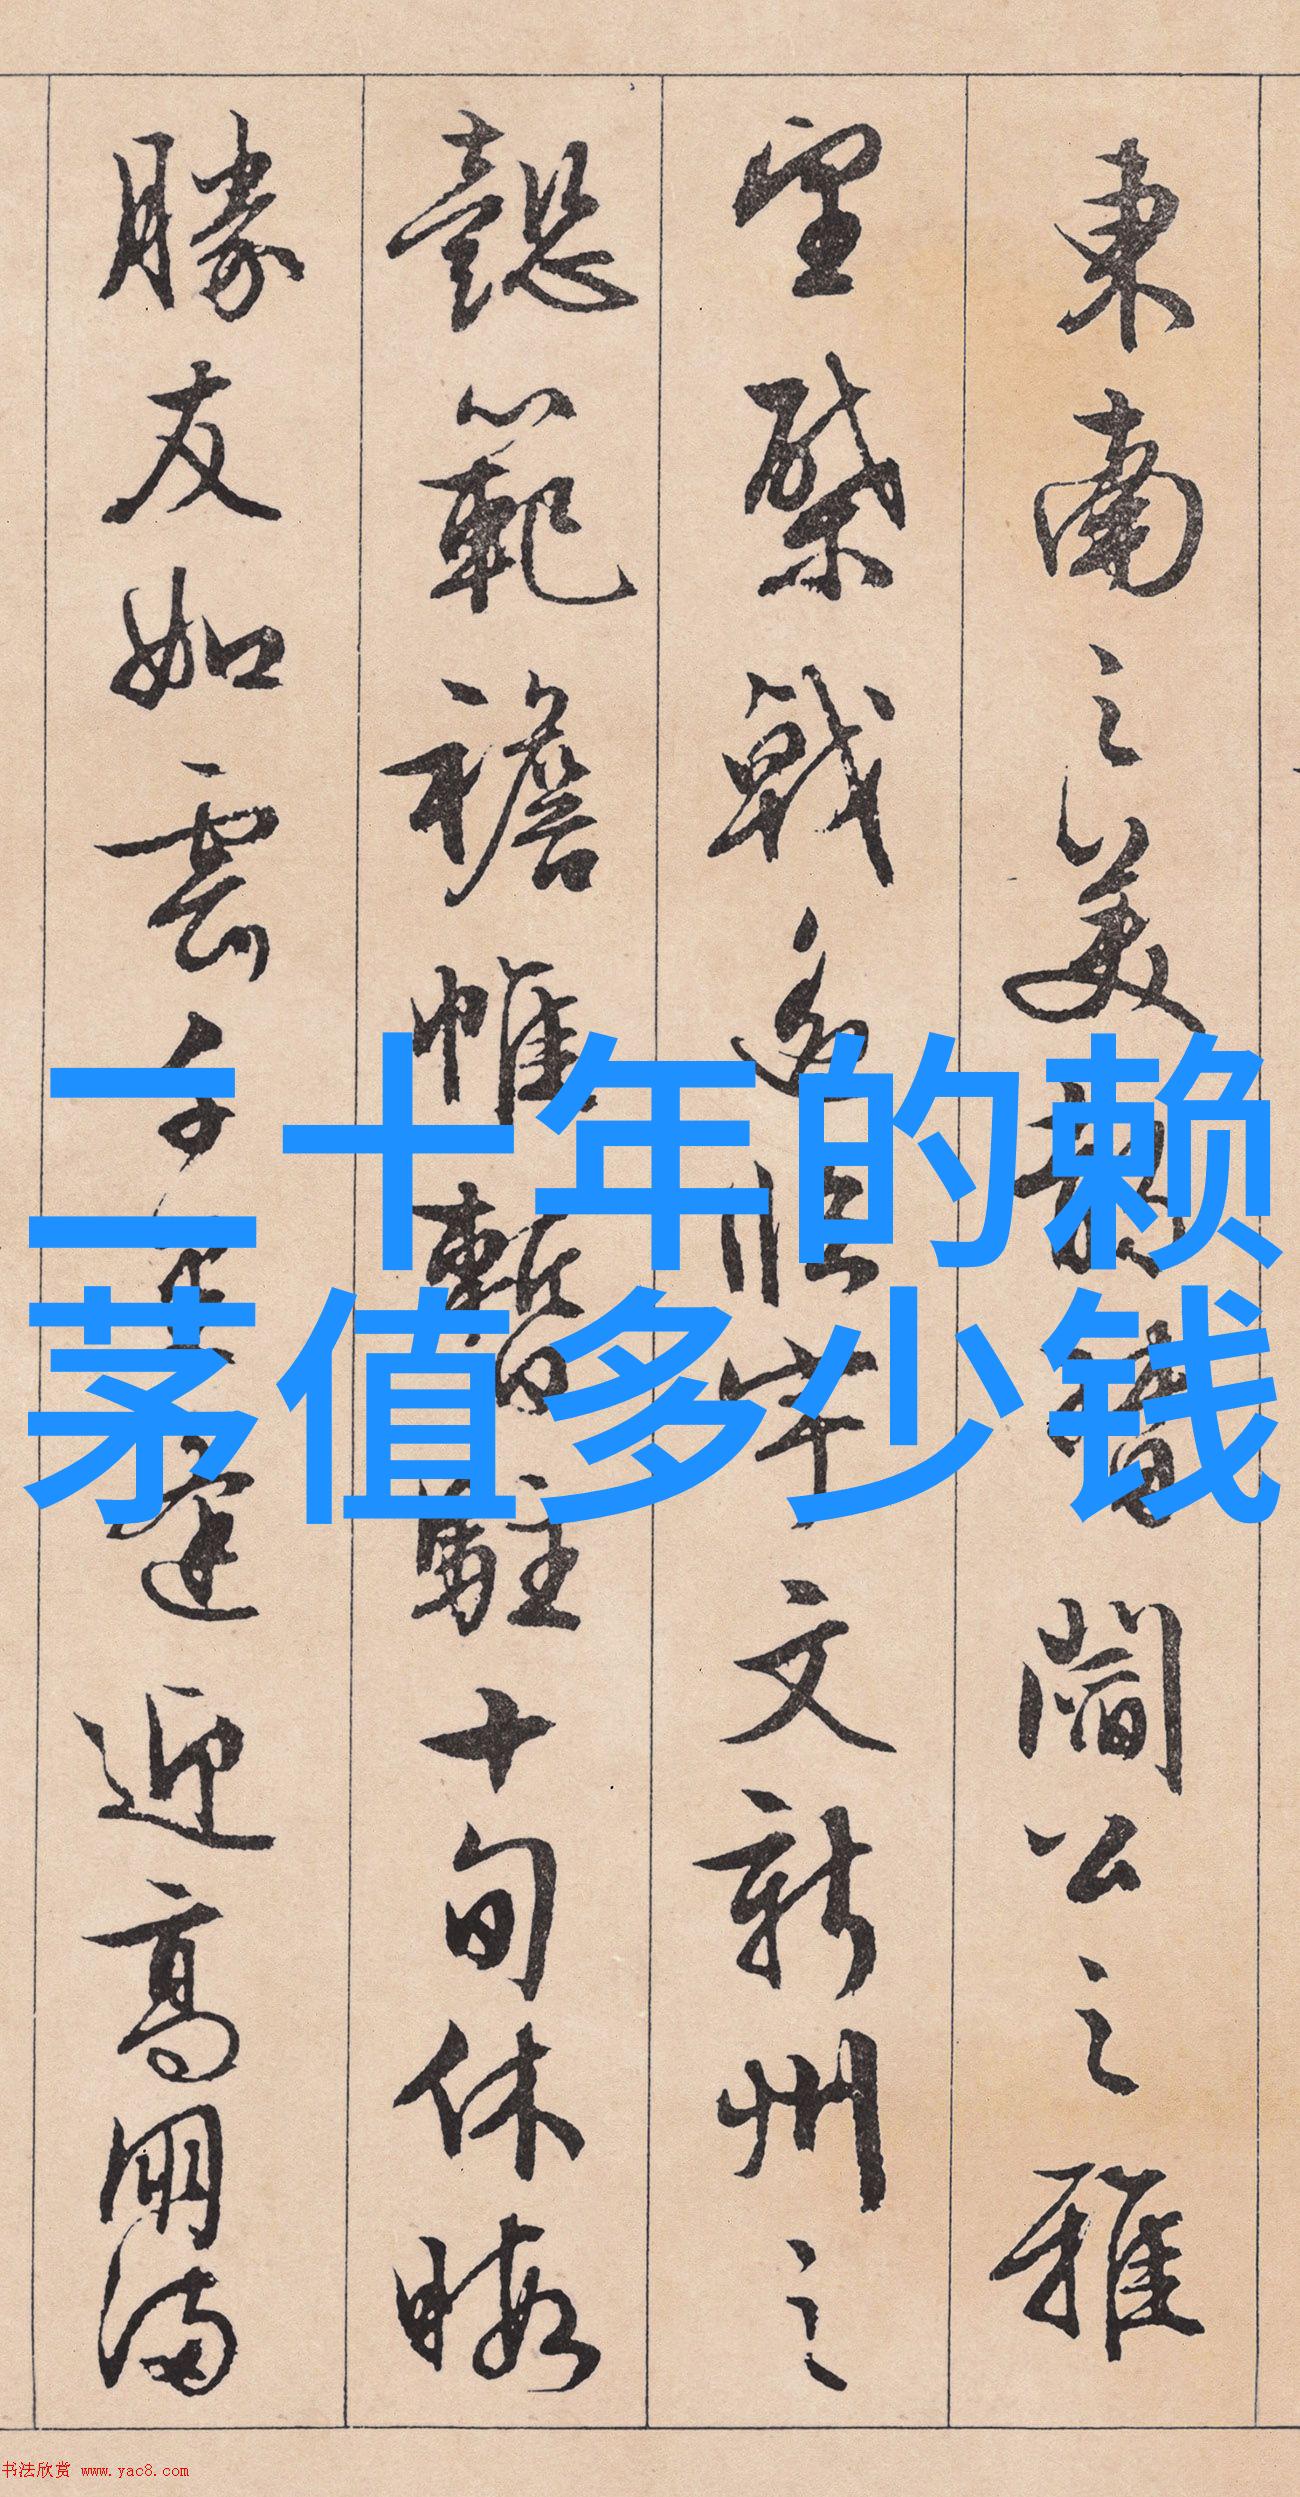 東南之美都督閻公之雅
望棨戟遙臨宇文新州之
懿範襜帷暫駐十旬休暇
勝友如雲千里逢迎高朋滿
二十年的赖
茅值多少钱
书法欣赏 www.yac8.com